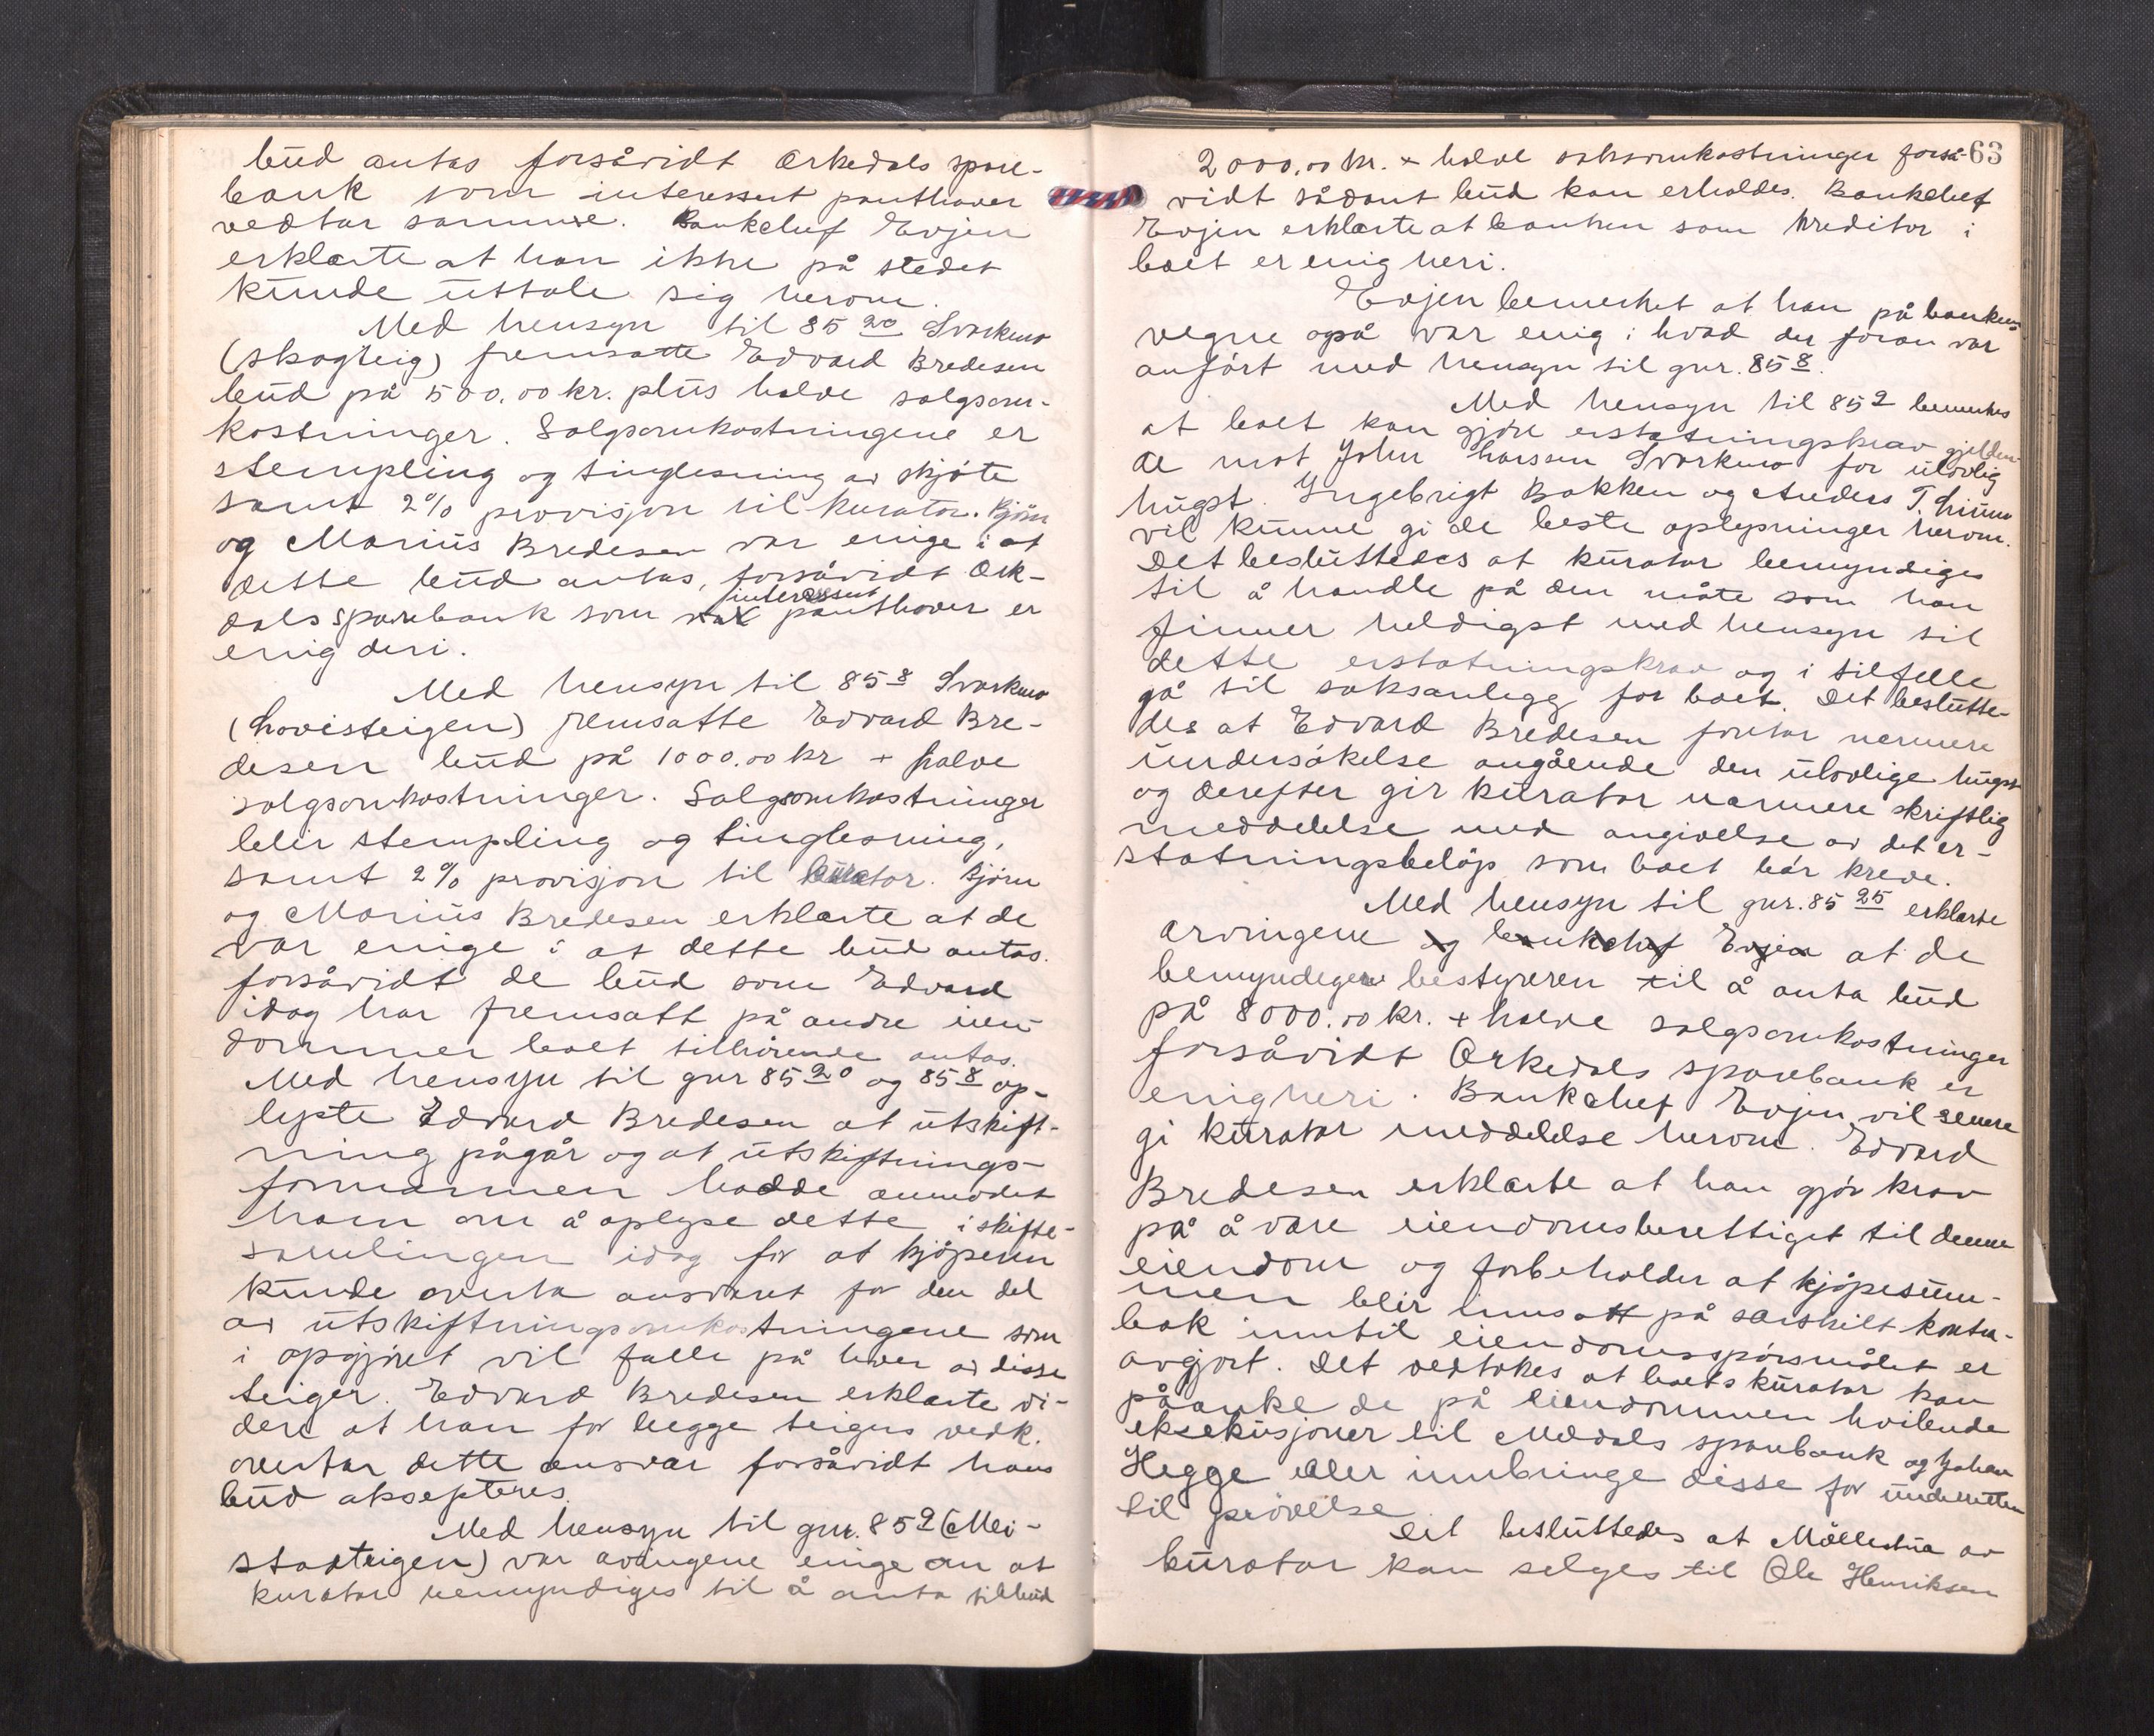 bud antas forsåvidt Orkedals spare-
bank som interessert panthaver
vedtar samme. Bankchef Evjen
erklærte at han ikke på stedet
kunde uttale sig herom.
Med hensyn til 85 20 Svorkmo
(skogteig) fremsatte Edvard Bredesen
bud på 500.00 kr. plus halve salgsom-
kostninger. Salgsomkostningene er
stempling og tinglesning av skjöte
samt 2% provisjon til kurator. Björn
og Marius Bredesen var enige i at
dette bud antas, forsåvidt Ork-
interessert
dals sparebank som panthaver er
enig deri.
Med hensyn til 85 8 Svorkmo
(Lovisteigen) fremsatte Edvard Bre-
desen bud på 1000.00 kr + halve
salgsomkostninger. Salgsomkostninger
blir stempling og tinglesning,
samt 2% provisjon til kurator. Björn
og Marius Bredesen erklærte at de
var enige i at dette bud antas.
forsåvidt de bud som Edvard
idag har fremsatt på andre eien-
dommer boet tilhörende antas.
Med hensyn til gnr 85 20 og 85 8 op-
lyste Edvard Bredesen at utskift-
ning pågår og at utskiftnings-
formannen hadde anmodet
ham om å oplyse dette i skifte-
samlingen idag for at kjöperen
kunde overta ansvaret for den del
av utskiftningsomkostningene som
i opgjöret vil falle på hver av disse
teiger. Edvard Bredesen erklærte vi-
dere at han for begge teigers vedk.
overtar dette ansvar forsåvidt hans
bud aksepteres.
Med hensyn til gnr. 85 2 (Mei-
stadteigen) var arvingene enige om at
kurator bemyndiges til å anta tilbud
63
2000.00 kr. + halve saksomkostninger forså-
vidt sådant bud kan erholdes. Bankchef
Evjen erklærte at banken som kreditor i
boet er enig heri.
Evjen bemerket at han på bankens
vegne også var enig i hvad der foran var
anfört med hensyn til gnr. 85 8.
Med hensyn til 85 2 bemerkes
at boet kan gjöre erstatningskrav gjelden-
de mot John Larssen Svorkmo for ulovlig
hugst. Ingebrigt Bakken og Anders T.
vil kunne gi de beste oplysninger herom.
Det besluttedes at kurator bemyndiges
til å handle på den måte som han
finner heldigst med hensyn til
dette erstatningskrav og i tilfelle
gå til saksanlegg for boet. Det beslutte-
des at Edvard Bredesen foretar nærmere
undersökelse angående den ulovlige hugst
og derefter gir kurator nærmere skriftlig
meddelelse med angivelse av det er-
statningsbelöp som boet bör kreve.
Med hensyn til gnr. 85 25 erklærte
arvingene og bankchef Evjen at de
bemyndiger bestyreren til å anta bud
på 8000.00 kr. + halve salgsomkostninger
forsåvidt Orkedals sparebank er
enig heri. Bankchef Evjen vil senere
gi kurator meddelelse herom. Edvard
Bredesen erklærte at han gjör krav
på å være eiendomsberettiget til denne
eiendom og forbeholder at kjöpesum-
men blir innsatt på særskilt konto-
bok inntil eiendomsspörsmålet er
avgjort. Det vedtokes at boets kurator kan
påanke de på eiendommen hvilende
eksekusjoner til Meldals sparebank og Johan
Hegge eller innbringe disse for underretten
til prövelse.
Det besluttedes at Möllestua av
kurator kan selges til Ole Henriksen